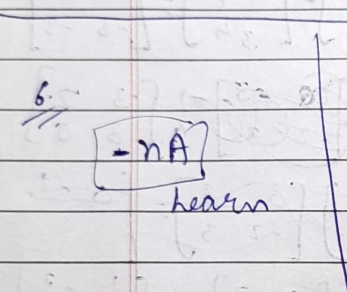 6.
- nA
Learn